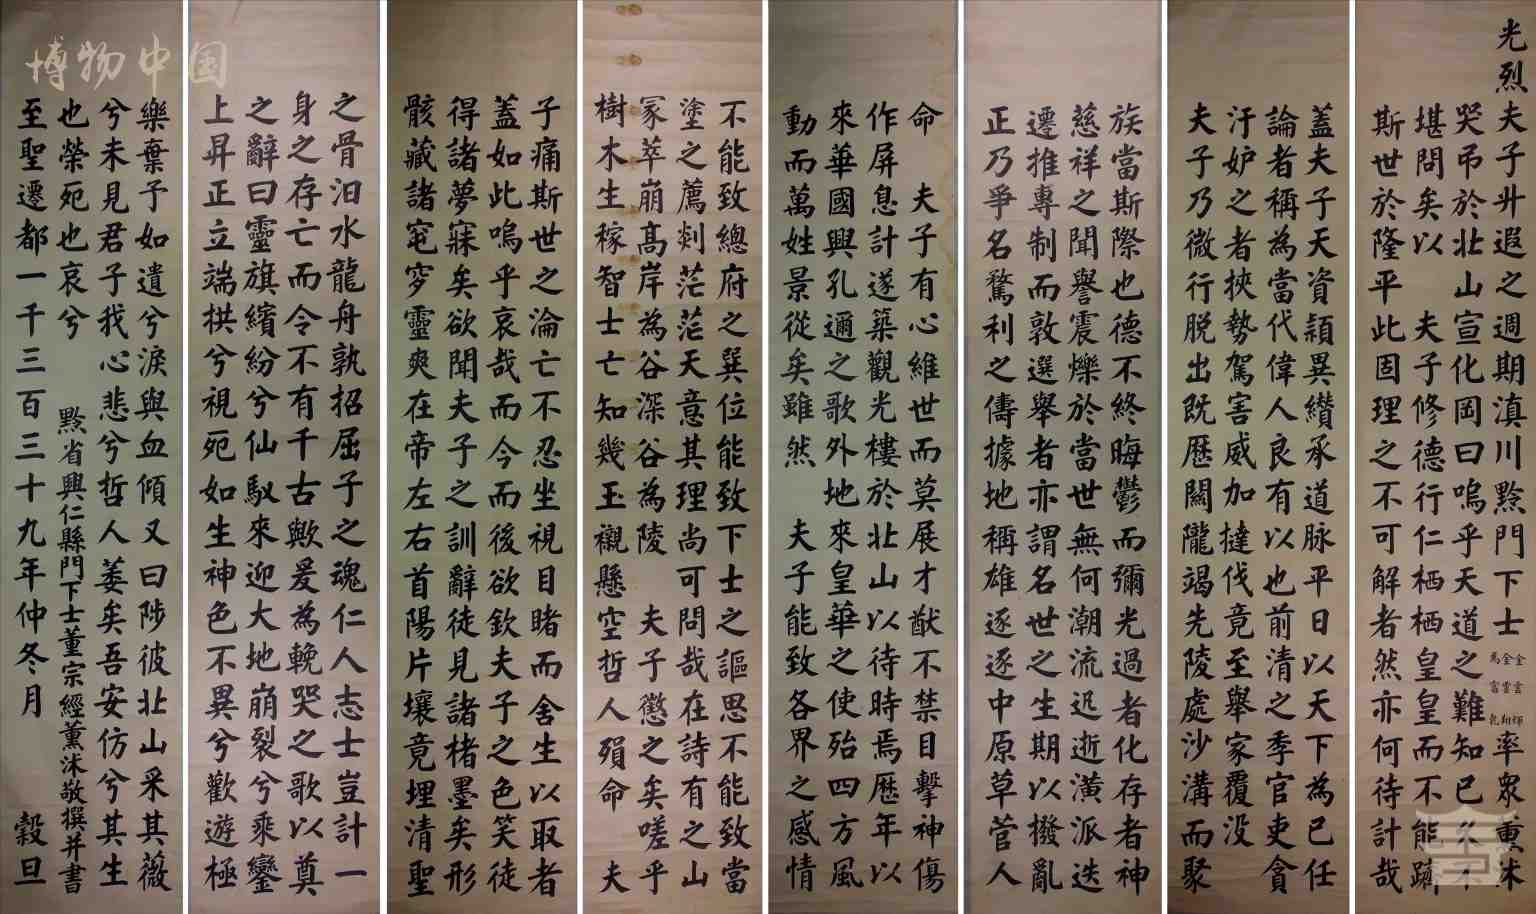 光烈夫子廾遐之週期滇川黔門下士金雲輝金雲翔馬富乾率眾熏沐
哭吊於北山宣化岡曰嗚乎天道之難知已久不
堪問矣以 夫子修德行仁栖栖皇皇而不能躋
斯世於隆平此固理之不可解者然亦何待計哉
蓋夫子天資穎異纘承道脉平日以天下為己任
論者稱為當代偉人良有以也前清之季官吏貪
汙妒之者挾勢駕害威加撻伐竟至舉家覆没
夫子乃微行脱出既歷關隴竭先陵處沙溝而聚
族當斯際也德不終晦鬱而彌光過者化存者神
慈祥之聞譽震爍於當世無何潮流迅逝潢派迭
遷推專制而敦選舉者亦謂名世之生期以撥亂
正乃爭名騖利之儔據地稱雄逐逐中原草菅人
命 夫子有心維世而莫展才猷不禁目擊神傷
作屏息計遂築觀光樓於北山以待時焉歷年以
來華國興孔邇之歌外地來皇華之使殆四方風
動而萬姓景從矣雖然 夫子能致各界之感情
不能致總府之巽位能致下士之謳思不能致當
塗之薦剡茫茫天意其理尚可問哉在詩有之山
冢萃崩高岸為谷深谷為陵 夫子懲之矣嗟乎
樹木生稼智士亡知幾玉襯懸空哲人殞命 夫
子痛斯世之淪亡不忍坐視目睹而舍生以取者
蓋如此嗚乎哀哉而今而後欲欽夫子之色笑徒
得諸夢寐矣欲聞夫子之訓辭徒見諸楮墨矣形
骸藏諸窀穸靈爽在帝左右首陽片壤竟埋清聖
之骨汨水龍舟孰招屈子之魂仁人志士豈計一
身之存亡而令不有千古歟爰為輓哭之歌以奠
之辭曰靈旗繽紛兮仙馭來迎大地崩裂兮乘鑾
上昇正立端拱兮視死如生神色不異兮歡遊極
樂棄子如遺兮淚與血傾又曰陟彼北山采其薇
兮未見君子我心悲兮哲人萎矣吾安仿兮其生
也榮死也哀兮 黔省興仁縣門下士董宗經薰沐敬撰并書
至聖遷都一千三百三十九年仲冬月 穀旦
博物中国